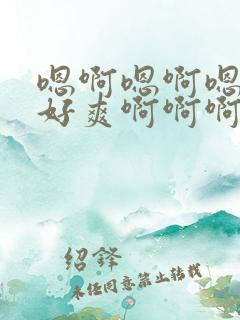 嗯啊嗯啊嗯
好爽啊啊啊
绍铎
未经同意禁止转载